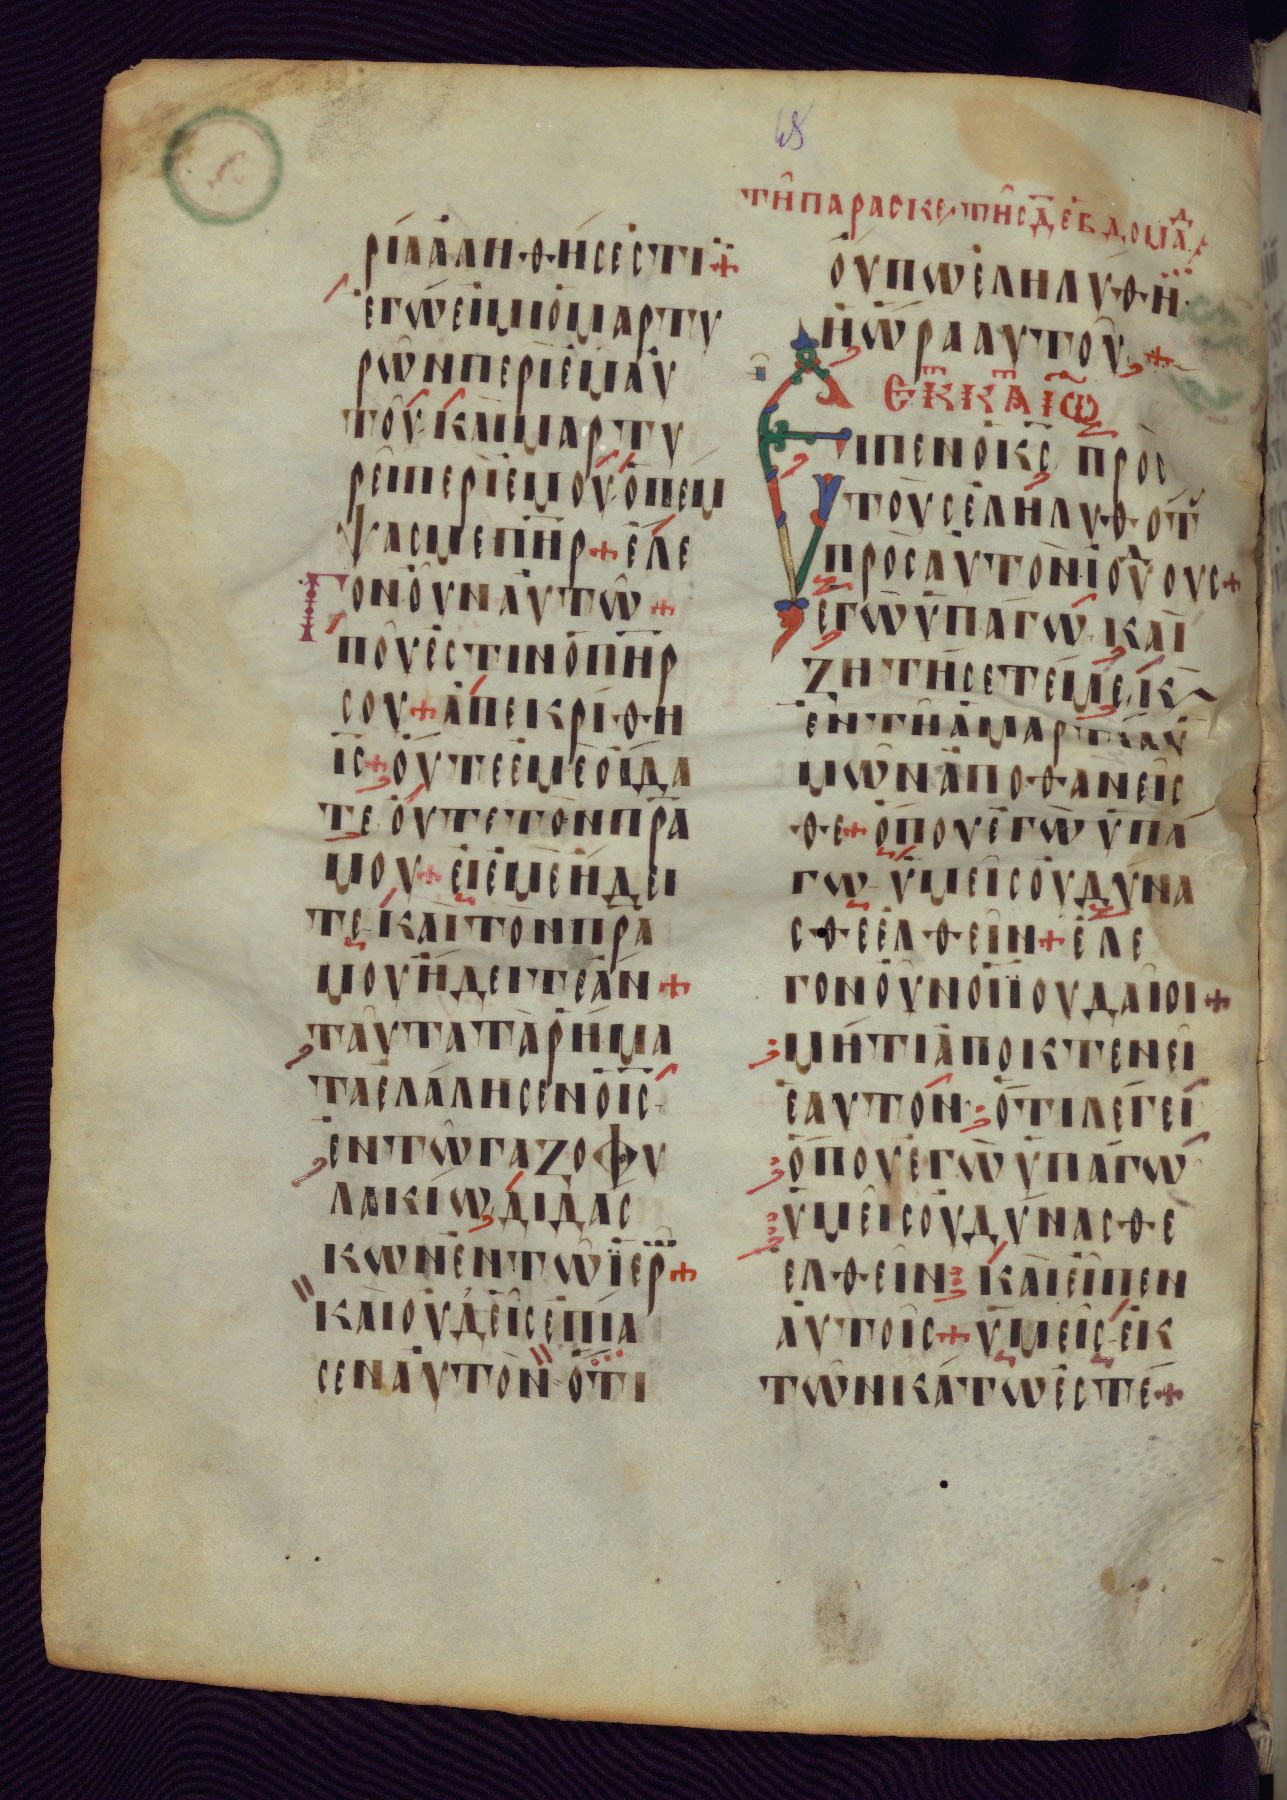 48
τῆ παρασκε τῆς δ̄ ἑβδομάδ
ΡΙΑ ἈΛΗΘΉς ΕςΤΙ +
ἘΓῺ ΕἸΜΙ Ὁ ΜΑΡΤΥ
ΡῶΝ ΠΕΡΙ ἘΜΑΥ
ΤΟῦ· ΚΑῚ ΜΑΡΤΥ
ΡΕῖ ΠΕΡῚ ἘΜΟῦ Ὁ ΠΕΜ
ΨΑς ΜΕ Π̅Η̅Ρ + ἜΛΕ
ΓΟΝ ΟὖΝ ΑὐΤῶ +
ΠΟῦ ἘςΤΙΝ Ὁ Π̅Η̅Ρ
ςΟΥ + ἈΠΕΚΡΊΘΗ
Ι̅ς + ΟὔΤΕ ἘΜΕ ΟἶΔΑ
ΤΕ ΟὔΤΕ ΤῸΝ Π̅Ρ̅Α
ΜΟΥ + ΕἸ ἘΜΕ ἬΔΕΙ
ΤΕ ΚΑῚ ΤῸΝ Π̅Ρ̅Α
ΜΟΥ ἬΔΕΙΤΕ ἊΝ +
ΤΑῦΤΑ ΤᾺ ΡΉΜΑ
ΤΑ ἘΛΆΛΗςΕΝ Ὁ Ι̅ς
ἘΝ Τῶ ΓΑΖΟΦΥ
ΛΑΚΊΩ ΔΙΔΆς
ΚΩΝ ἘΝ Τῶ ἹΕΡ +
ΚΑῚ ΟὐΔΕῚς ἘΠΊΑ
ςΕΝ ΑὐΤῸΝ ὍΤΙ
ΟὔΠΩ ἘΛΗΛΎΘΗ
Ἡ ὭΡΑ ΑὐΤΟῦ +
ΕΚ Κ̅Α̅ ΙΩ̅
ΕἾΠΕΝ Ὁ Κ̅ς ΠΡῸς
ΤΟῪς ἘΛΗΛΥΘΟΤ
ΠΡῸς ΑὐΤῸΝ ἸΟΥΔΟΥς +
ἘΓῺ ὑΠΆΓΩ ΚΑῚ
ΖΗΤΉςΕΤΕ ΜΕ, Κ
ἘΝ Τῆ ἉΜΑΡΤΊΑ Ὑ
ΜῶΝ ἈΠΟΘΑΝΕῖς
ΘΕ + ὍΠΟΥ ἘΓῺ ὑΠΆ
ΓΩ ὑΜΕῖς Οὐ ΔΎΝΑ
ςΘΕ ἘΛΘΕῖΝ + ἜΛΕ
ΓΟΝ ΟὖΝ ΟἹ ἸΟΥΔΑῖΟΙ +
ΜΉΤΙ ἈΠΟΚΤΕΝΕῖ
ἙΑΥΤῸΝ ὍΤΙ ΛΈΓΕΙ
ὍΠΟΥ ἘΓῺ ὑΠΆΓΩ
ὑΜΕῖς Οὐ ΔΎΝΑςΘΕ
ἘΛΘΕῖΝ ΚΑῚ ΕἾΠΕΝ
ΑὐΤΟῖς + ὑΜΕῖς ἘΚ
ΤῶΝ ΚΆΤΩ ἘςΤῈ +